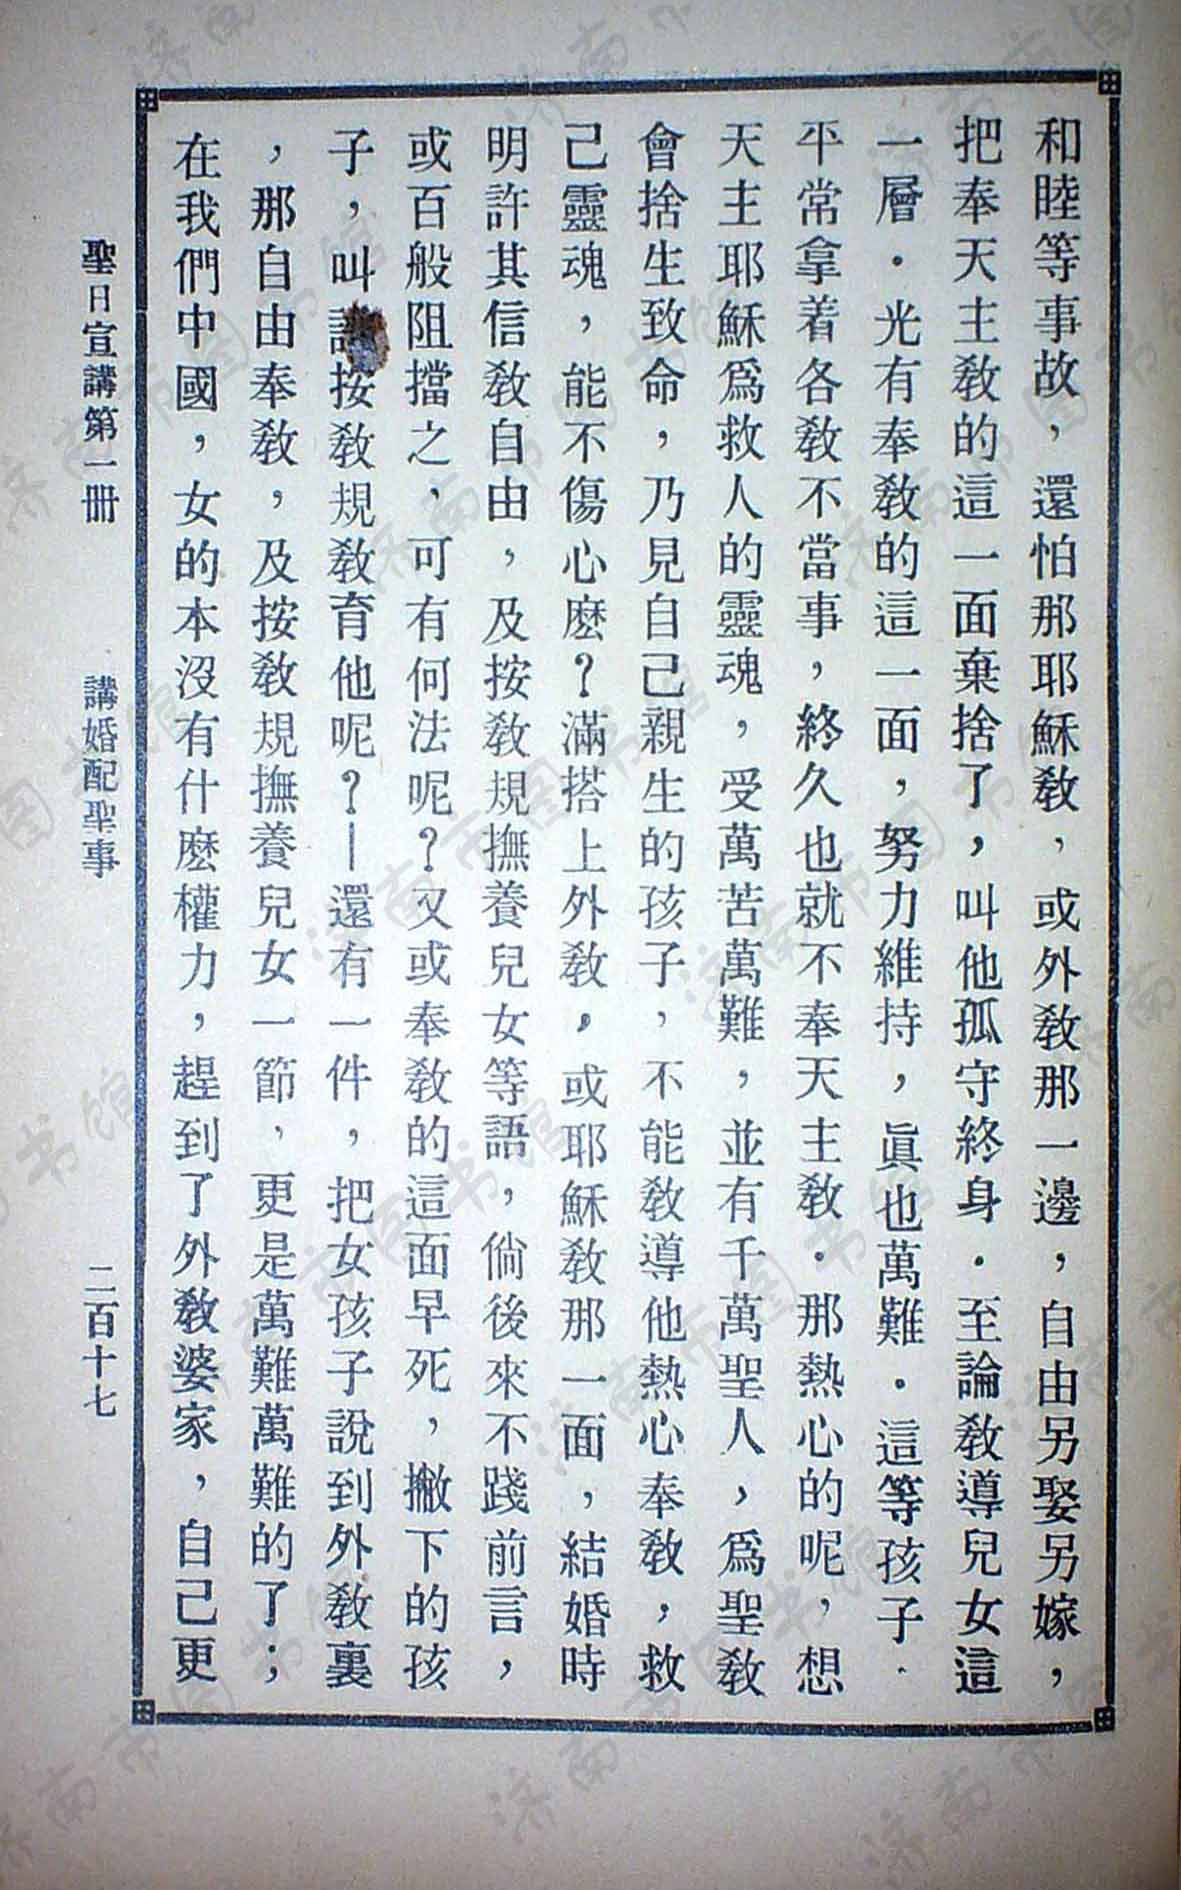 和睦等事故，還怕那耶穌敎，或外敎那一邊，自由另娶另嫁，
把奉天主敎的這一面棄捨了，叫他孤守終身．至論敎導兒女這
一層．光有奉敎的這一面，努力維持，眞也萬難．這等孩子．
平常拿着各敎不當事，終久也就不奉天主敎．那熱心的呢，想
天主耶穌爲救人的靈魂，受萬苦萬難，並有千萬聖人，爲聖敎
會捨生致命，乃見自己親生的孩子，不能敎導他熱心奉敎，救
己靈魂，能不傷心麽？滿搭上外敎，或耶穌敎那一面，結婚時
明許其信敎自由，及按敎規撫養兒女等語，倘後來不踐前言，
或百般阻擋之，可有何法呢？又或奉敎的這面早死，撇下的孩
子，叫按敎規敎育他呢？—還有一件，把女孩子說到外敎裏
，那自由奉敎，及按敎規撫養兒女一節，更是萬難萬難的了；
在我們中國，女的本沒有什麽權力，趕到了外敎婆家，自己更
聖日宣講第一册　講婚配聖事　二百十七
济南市图书馆